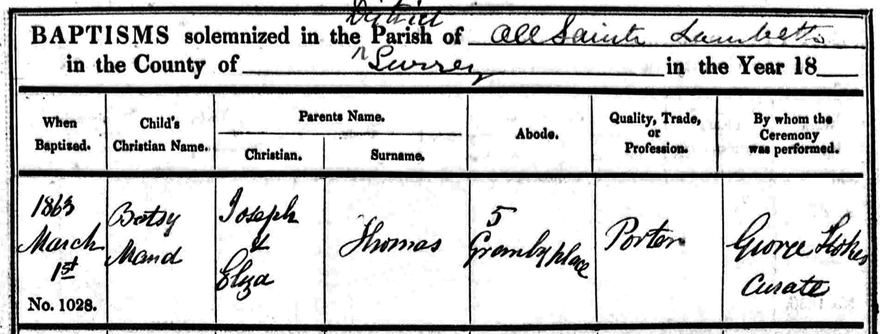 District
BAPTISMS solemnized in the Parish of All Saints Lambeth
in the County of Surrey in the Year 18
When Baptized.
Child's Christian Name.
Parents Name.
Christian.
Surname.
Abode.
Quality, Trade, or Profession.
By whom the Ceremony was performed.
1863
March
1st
No. 1028.
Betsy
Maud
Joseph
&
Eliza
Thomas
5
place
Porter
George Stokes
Curate